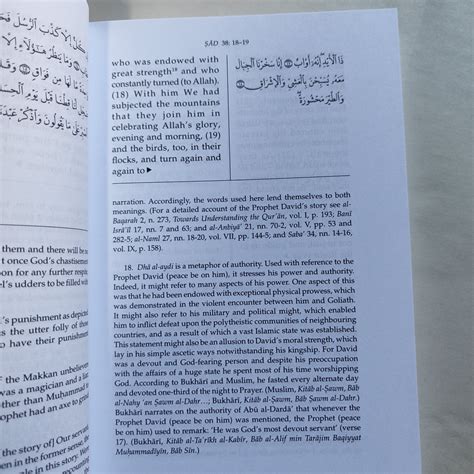 them and there will be
t once God's chastisement
pace for any further respite
el's udders to be filled with
's punishment as depicted
s the utter folly of those
have their punishment
f the Makkan unbelievers
was a magician and a liar
ther than Muhammad
rophet had an axe to
the story of] Our servant
ple in this story. Were
ṢĀD 38: 18–19
who was endowed with
great strength¹⁸ and who
constantly turned (to Allah).
(18) With him We had
subjected the mountains
that they join him in
celebrating Allah's glory,
evening and morning, (19)
and the birds, too, in their
flocks, and turn again and
again to ▶
ذَا الْأَيْدِ إِنَّهُ أَوَّابٌ إِنَّا سَخَّرْنَا الْجِبَالَ
مَعَهُ يُسَبِّحْنَ بِالْعَشِيِّ وَالْإِشْرَاقِ
وَالطَّيْرَ مَحْشُورَةً
narration. Accordingly, the words used here lend themselves to both
meanings. (For a detailed account of the Prophet David's story see al-
Baqarah 2, n. 273, Towards Understanding the Qur'ān, vol. I, p. 193; Banī
Isrā'īl 17, nn. 7 and 63; and al-Anbiyā' 21, nn. 70-2, vol. V, pp. 53 and
282-5; al-Naml 27, nn. 18-20, vol. VII, pp. 144-5; and Saba' 34, nn. 14-16,
vol. IX, p. 158).
18. Dhā al-aydi is a metaphor of authority. Used with reference to the
Prophet David (peace be on him), it stresses his power and authority.
Indeed, it might refer to many aspects of his personality. One aspect of this
was that he had been endowed with exceptional physical prowess, which
was demonstrated in the violent encounter between him and Goliath.
It might also refer to his military and political might, which enabled
him to inflict defeat upon the polytheistic communities of neighbouring
countries, and as a result of which a vast Islamic state was established.
This statement might also be an allusion to David's moral strength, which
lay in his simple ascetic ways notwithstanding his kingship. For David
was a devout and God-fearing person and despite his preoccupation
with the affairs of a huge state he spent most of his time worshipping
God. According to Bukhārī and Muslim, he fasted every alternate day
and devoted one-third of the night to Prayer. (Bukhārī, Kitāb al-Ṣawm, Bāb
al-Nahy 'an Ṣawm al-Dahr...; Bukhārī, Kitāb al-Ṣawm, Bāb Ṣawm al-Dahr.)
Bukhārī narrates on the authority of Abū al-Dardā' that whenever the
Prophet David (peace be on him) was mentioned, the Prophet (peace
be on him) used to remark: 'He was God's most devout servant' (vrse).
(Bukhārī, Kitāb al-Ta'rīkh al-Kabīr, Bāb al-Alif min Tarājim Baqiyyat
Muḥammadiyīn, Bāb Sīn.)